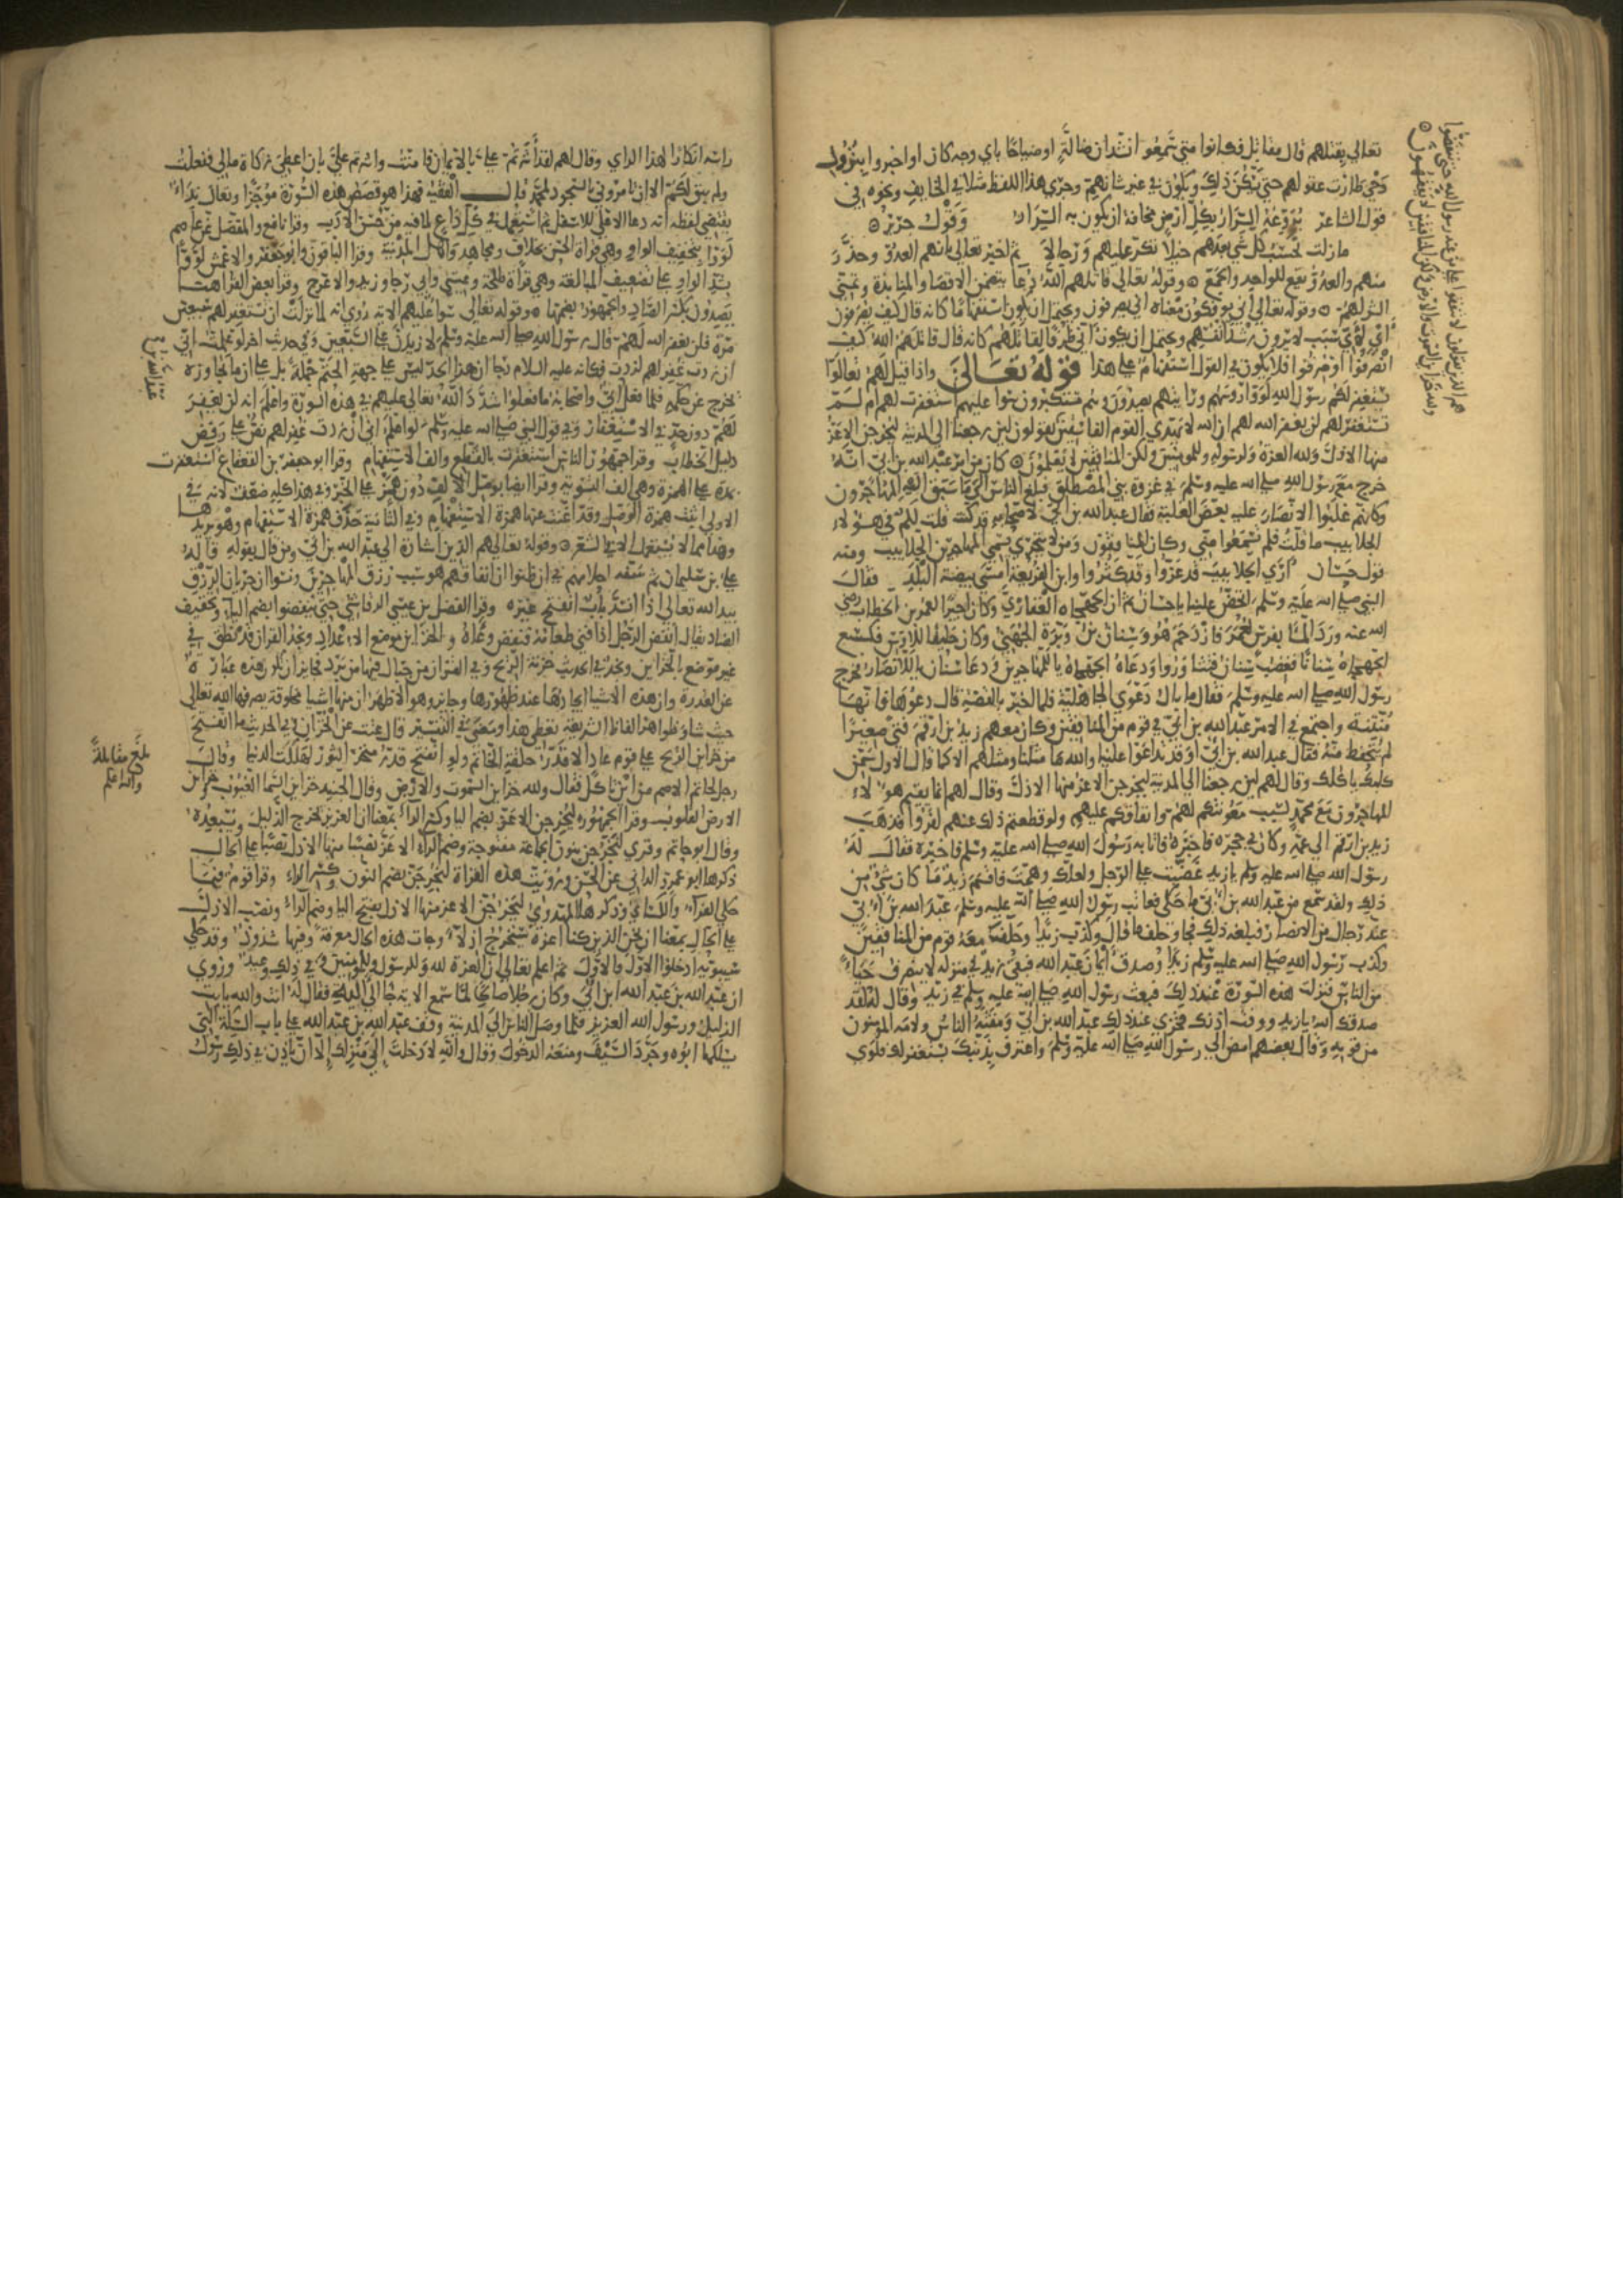 تعالى يقتلهم قال مقاتل فكانوا متى سمعوا انشدان ضالة او صياحا باي وجه كان او اخبروا بنزول
وحي طارت عقولهم حتى يسكن ذلك ويكون في غير شانهم وجرى هذا اللفظ مثلا في الخايف ونحوه
قول الشاعر يروعه السرار بكل ارض مخافة ان يكون به السرار وقول جرير
ما زلت تحسب كل شي بعدهم خيلا تكر عليهم ورجالا ثم اخبر تعالى بانهم العدو وحذر
منهم والعدو يقع للواحد والجمع وقوله تعالى قاتلهم الله دعا يتضمن الاقصا والمنابذة وتمني
الشر لهم وقوله تعالى اني يوفكون معناه اني يصرفون ويحتمل ان يكون استفهاما كانه قال كيف يصرفون
او لاي سبب لا يرون رشد انفسهم ويحتمل ان يكون اني ظرفا لقاتلهم كانه قال قاتلهم الله كيف
انصرفوا او صرفوا فلا يكون في القول استفهام على هذا قوله تعالى واذا قيل لهم تعالوا
يستغفر لكم رسول الله لووا روسهم ورايتهم يصدون وهم مستكبرون سوا عليهم استغفرت لهم ام لم
تستغفر لهم لن يغفر الله لهم ان الله لا يهدي القوم الفاسقين يقولون لين رجعنا الى المدينة ليخرجن الاعز
منها الاذل ولله العزة ولرسوله وللمومنين ولكن المنافقين لا يعلمون كان من امر عبد الله بن ابي انه
خرج مع رسول الله صلى الله عليه وسلم في غزوة بني المصطلق فبلغ الناس الى ما سبق اليه المهاجرون
وكانهم غلبوا الانصار عليه بعض الغلبة فقال عبد الله بن ابي لاصحابه قد كنت قلت لكم في هولاء
الجلابيب ما قلت فلم تسمعوا مني وكان المنافقون ومن لا يتحرى يسمي المهاجرين الجلابيب ومنه
قول حسان ارى الجلابيب قد عزوا وقد كثروا وابن الفريعة امسى بيضة البلد فقال
النبي صلى الله عليه وسلم اتحض علينا يا حسان ثم ان الجهجاه الغفاري وكان اجيرا لعمر بن الخطاب رضي
الله عنه ورد الما بفرس لعمر فازدحم هو وسنان بن وبرة الجهني وكان حليفا للاوس فكسع
الجهجاه سنانا فغضب سنان فتثاوروا ودعا الجهجاه يا للمهاجرين ودعا سنان يا للانصار فخرج
رسول الله صلى الله عليه وسلم فقال ما بال دعوى الجاهلية فلما اخبر بالقصة قال دعوها فانها
منتنة واجتمع في الامر عبد الله بن ابي في قوم من المنافقين وكان معهم زيد بن ارقم فتى صغيرا
لم يتحفظ منه فقال عبد الله بن ابي اوقد تداعوا علينا والله ما مثلنا ومثلهم الا كما قال الاول سمن
كلبك ياكلك وقال لهم لين رجعنا الى المدينة ليخرجن الاعز منها الاذل وقال لهم انما يقيم هولاء
المهاجرون مع محمد بسبب معونتكم لهم وانفاقكم عليهم ولو قطعتم ذلك عنهم لفروا فذهب
زيد بن ارقم الى عمه وكان في حجره فاخبره فاتى به رسول الله صلى الله عليه وسلم فاخبره فقال له
رسول الله صلى الله عليه وسلم يا زيد غضبت على الرجل ولعلك وهمت فاقسم زيد ما كان شي من
ذلك ولقد سمع من عبد الله بن ابي ما حكى فعاتب رسول الله صلى الله عليه وسلم عبد الله بن ابي
عند رجال من الانصار فبلغه ذلك فجا وحلف ما قال وكذب زيدا وحلف معه قوم من المنافقين
وكذب رسول الله صلى الله عليه وسلم زيدا وصدق ايمان عبد الله فبقي زيد في منزله لا يتصرف حياء
من الناس فنزلت هذه السورة عند ذلك فبعث رسول الله صلى الله عليه وسلم في زيد وقال له لقد
صدقك الله يا زيد ووفت اذنك فخزي عند ذلك عبد الله بن ابي ومقته الناس ولامه المومنون
من قومه وقال بعضهم امض الى رسول الله صلى الله عليه وسلم واعترف بذنبك يستغفر لك فلوى
هم الذين يقولون لا تنفقوا على من عند رسول الله حتى ينفضوا
ولله خزاين السموات والارض ولكن المنافقين لا يفقهون
راسه انكارا لهذا الراي وقال لهم لقد اشرتم علي بالايمان فامنت واشرتم علي بان اعطي زكاة مالي ففعلت
ولم يبق لكم الا ان تامروني بالسجود لمحمد قال الفقيه فهذا هو قصص هذه السورة موجزا وتعال نداء
يقتضي لفظه انه دعا الاعلى للاسفل ثم استعمل في كل داع لما فيه من حسن الادب وقرا نافع والمفضل عن عاصم
لووا بتخفيف الواو وهي قراة الحسن بخلاف ومجاهد واهل المدينة وقرا الباقون وابو جعفر والاعمش لووا
بشد الواو على تضعيف المبالغة وهي قراة طلحة وعيسى وابي رجا وزيد والاعرج وقرا بعض القراء هنا
يصدون بكسر الصاد والجمهور بضمها وقوله تعالى سوا عليهم الاية روي انه لما نزلت ان تستغفر لهم سبعين
مرة فلن يغفر الله لهم قال رسول الله صلى الله عليه وسلم لازيدن على السبعين وفي حديث اخر لو علمت اني
ان زدت غفر لهم لزدت فكانه عليه السلام رجا ان هذا الحد ليس على جهة الحتم جملة بل على ان ما يجاوزه
يخرج عن حكمه فلما فعل ابي واصحابه ما فعلوا شدد الله تعالى عليهم في هذه السورة واعلم انه لن يغفر
لهم دون حد في الاستغفار وفي قول النبي صلى الله عليه وسلم لو اعلم اني ان زدت غفر لهم نص على رفض
دليل الخطاب وقرا جمهور الناس استغفرت بالقطع والف الاستفهام وقرا ابو جعفر بن القعقاع استغفرت
بمدة على الهمزة وهي الف التسوية وقرا ايضا بوصل الالف دون همز على الخبر وفي هذا كله ضعف لانه في
الاولى اثبت همزة الوصل وقد اغنت عنها همزة الاستفهام وفي الثانية حذف همزة الاستفهام وهو يريدها
وهذا مما لا يستعمل الا في الشعر وقوله تعالى هم الذين اشارة الى عبد الله بن ابي ومن قال بقوله قاله
علي بن سليمان ثم سفه احلامهم في ان ظنوا ان انفاقهم هو سبب رزق المهاجرين ونسوا ان جريان الرزق
بيد الله تعالى اذا انسد باب انفتح غيره وقرا الفضل بن عيسى الرقاشي حتى ينفضوا بضم اليا وتخفيف
الضاد يقال انفض الرجل اذا فني طعامه فنفض وعاه والخزاين موضع الاعداد ونجد القران قد نطق في
غير موضع بالخزاين ونحوه في الحديث خزنة الريح وفي القران من جبال فيها من برد فجايز ان تكون هذه عبارة
عن القدرة وان هذه الاشيا ايجادها عند ظهورها وجايز وهو الاظهر ان منها اشيا مخلوقة يصرفها الله تعالى
حيث شا وظواهر الفاظ الشريعة تعطي هذا ومعنى في التفسير قال عتت عن الخزان في الحديث ما انفتح
من خزاين الريح على قوم عاد الا قدر حلقة الخاتم ولو انفتح قدر منخر الثور لهلكت الدنيا وقال
رجل لحاتم الاصم من اين تاكل فقال ولله خزاين السموات والارض وقال الجنيد خزاين السما الغيوب وخزاين
الارض القلوب وقرا الجمهور ليخرجن الاعز بضم اليا وكسر الراء بمعنى ان العزيز يخرج الذليل ويبعده
وقال ابو حاتم وقري لنخرجن بنون الجماعة مفتوحة وضم الراء الاعز نصبا منها الاذل نصبا على الحال
ذكرها ابو عمرو الداني عن الحسن ورويت هذه القراة لنخرجن بضم النون وكسر الراء وقرا قوم فيما
حكى الفراء والكساي وذكرها المهدوي ليخرجن الاعز منها الاذل بفتح اليا وضم الراء ونصب الاذل
على الحال بمعنى ان نحن الذين كنا اعزة سنخرج اذلاء وجات هذه الحال معرفة وفيها شذوذ وقد حكى
سيبويه ادخلوا الاول فالاول ثم اعلم تعالى ان العزة لله وللرسول وللمومنين وفي ذلك وعيد وروي
ان عبد الله بن عبد الله ابن ابي وكان رجلا صالحا لما سمع الاية جا الى ابيه فقال له انت والله يا ابت
الذليل ورسول الله العزيز فلما وصل الناس الى المدينة وقف عبد الله بن عبد الله على باب السكة التي
يسلكها ابوه وجرد السيف ومنعه الدخول وقال والله لا دخلت الى منزلك الا ان ياذن في ذلك رسول
بلغ مقابلة
والله اعلم